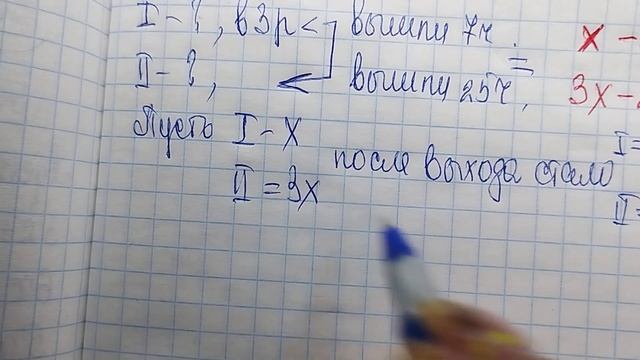 I - ?, в 3р < вышли 7ч. = x -
II - ?, вышли 25ч, 3x -
Пусть I - x I =
II = 3x после выхода стало II =